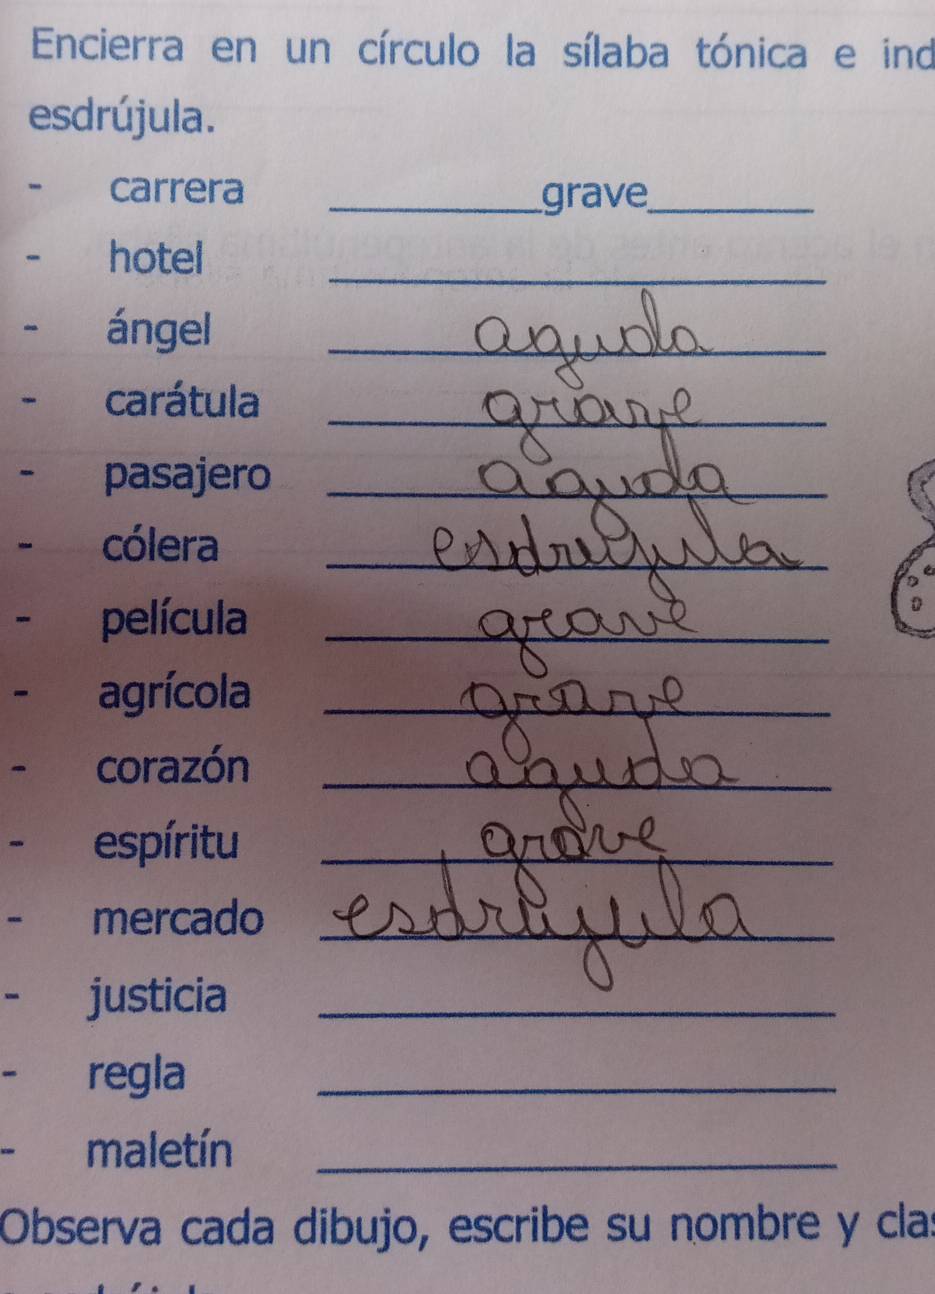 Encierra en un círculo la sílaba tónica e ind
esdrújula.
- carrera ____grave____
- hotel
- ángel aguda
- carátula grave
- pasajero aguda
- cólera esdrujula
- película grave
- agrícola grave
- corazón aguda
- espíritu grave
- mercado esdrujula
- justicia
- regla
- maletín
Observa cada dibujo, escribe su nombre y clas